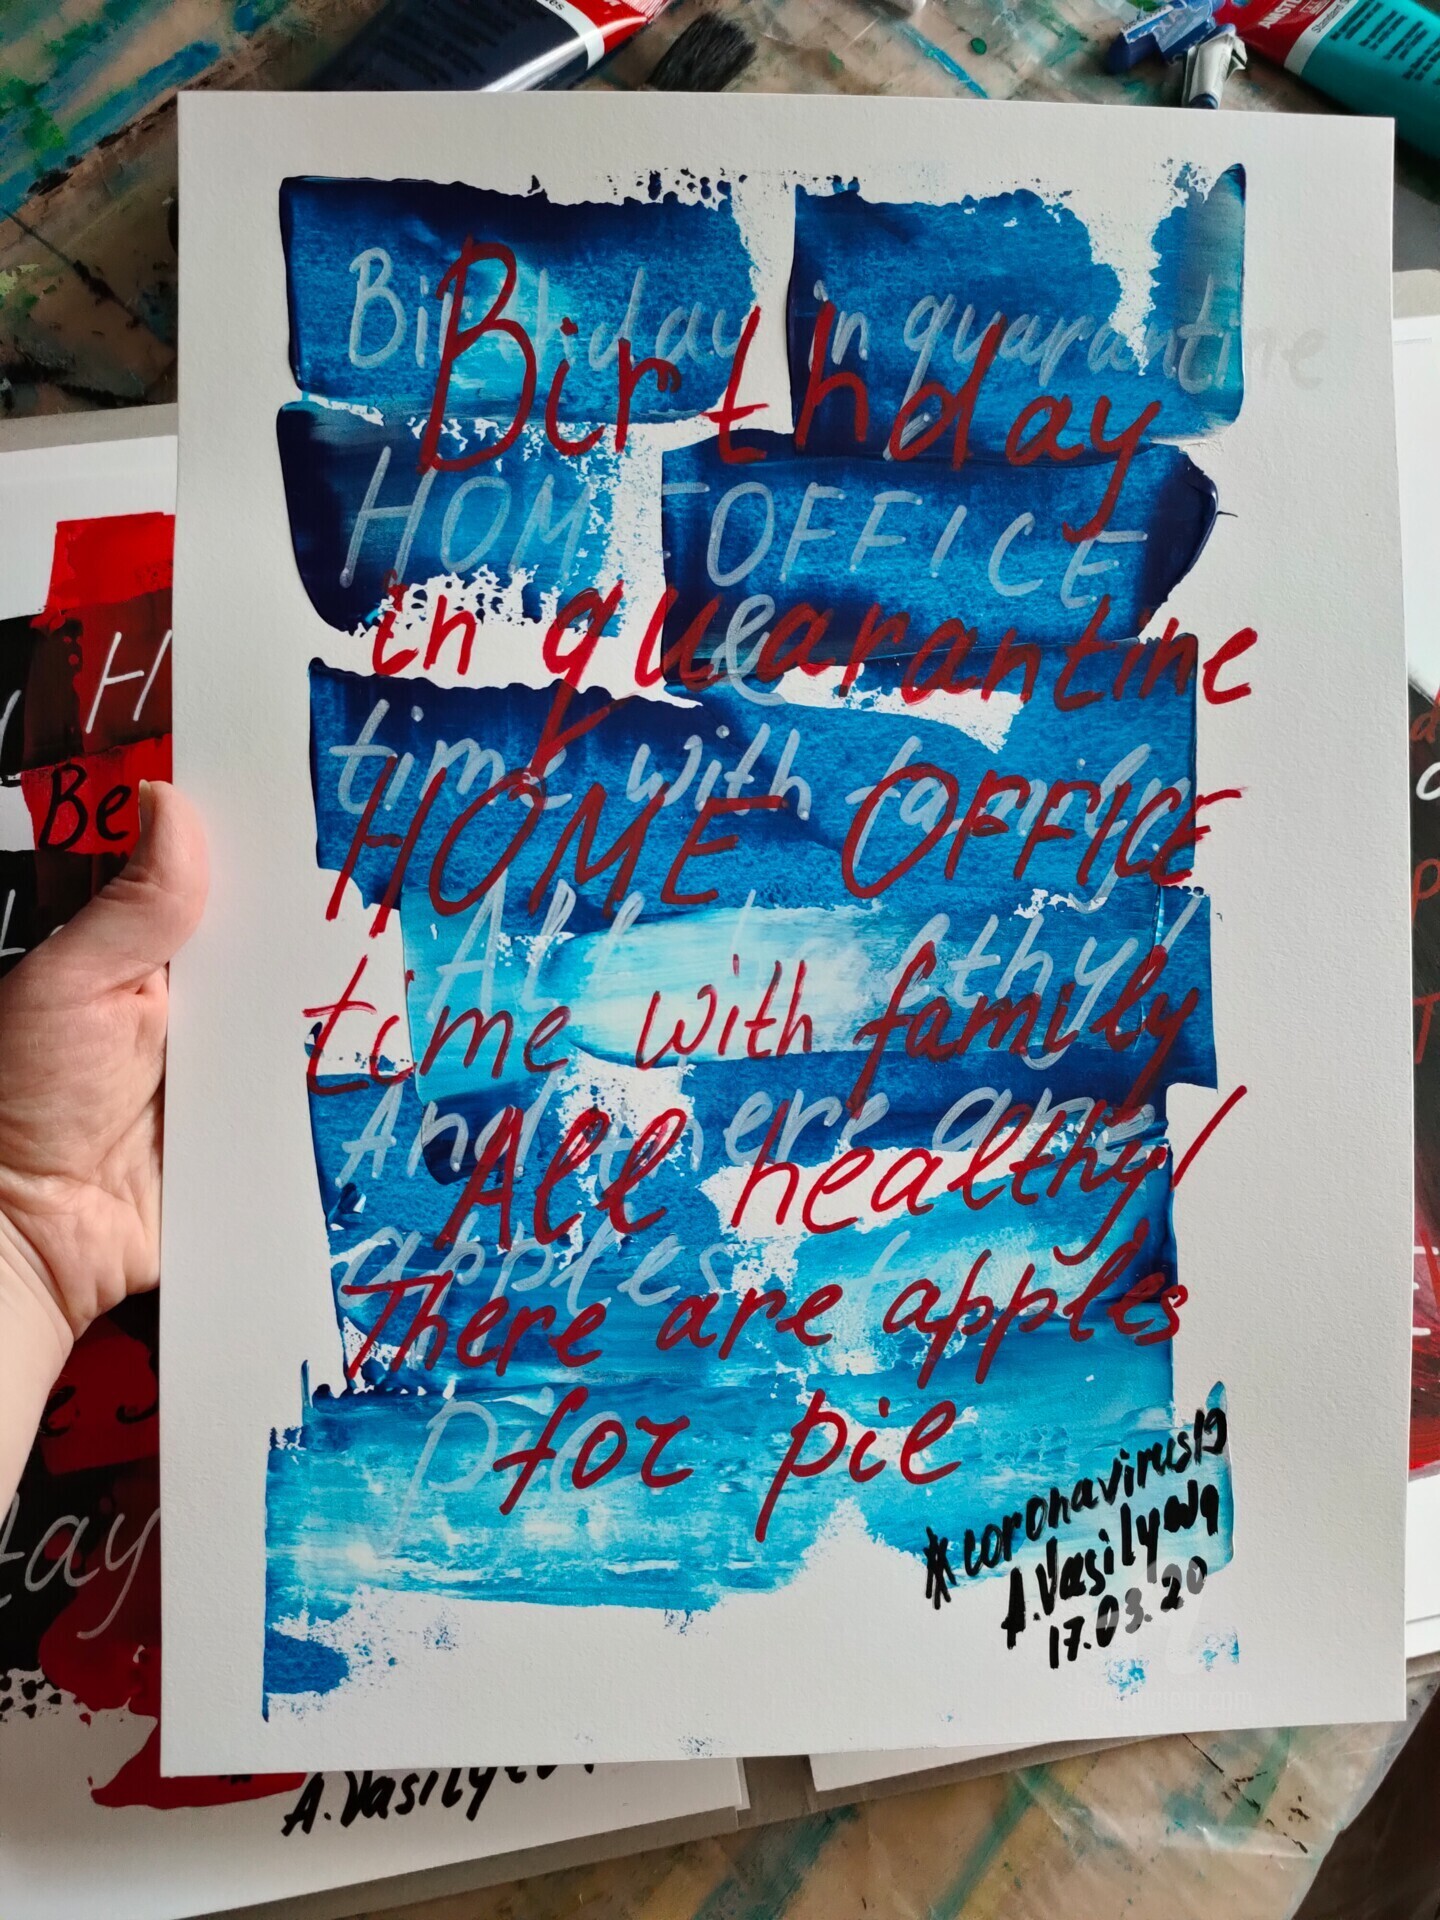 Birthday in quarantine
HOME OFFICE
&
time with family
All healthy!
And there are
apples for
pie
Birthday
in quarantine
HOME OFFICE
time with family
All healthy!
There are apples
for pie
#coronavirus19
A.Vasilyeva
17.03.20
H
Be
A.Vasilyeva